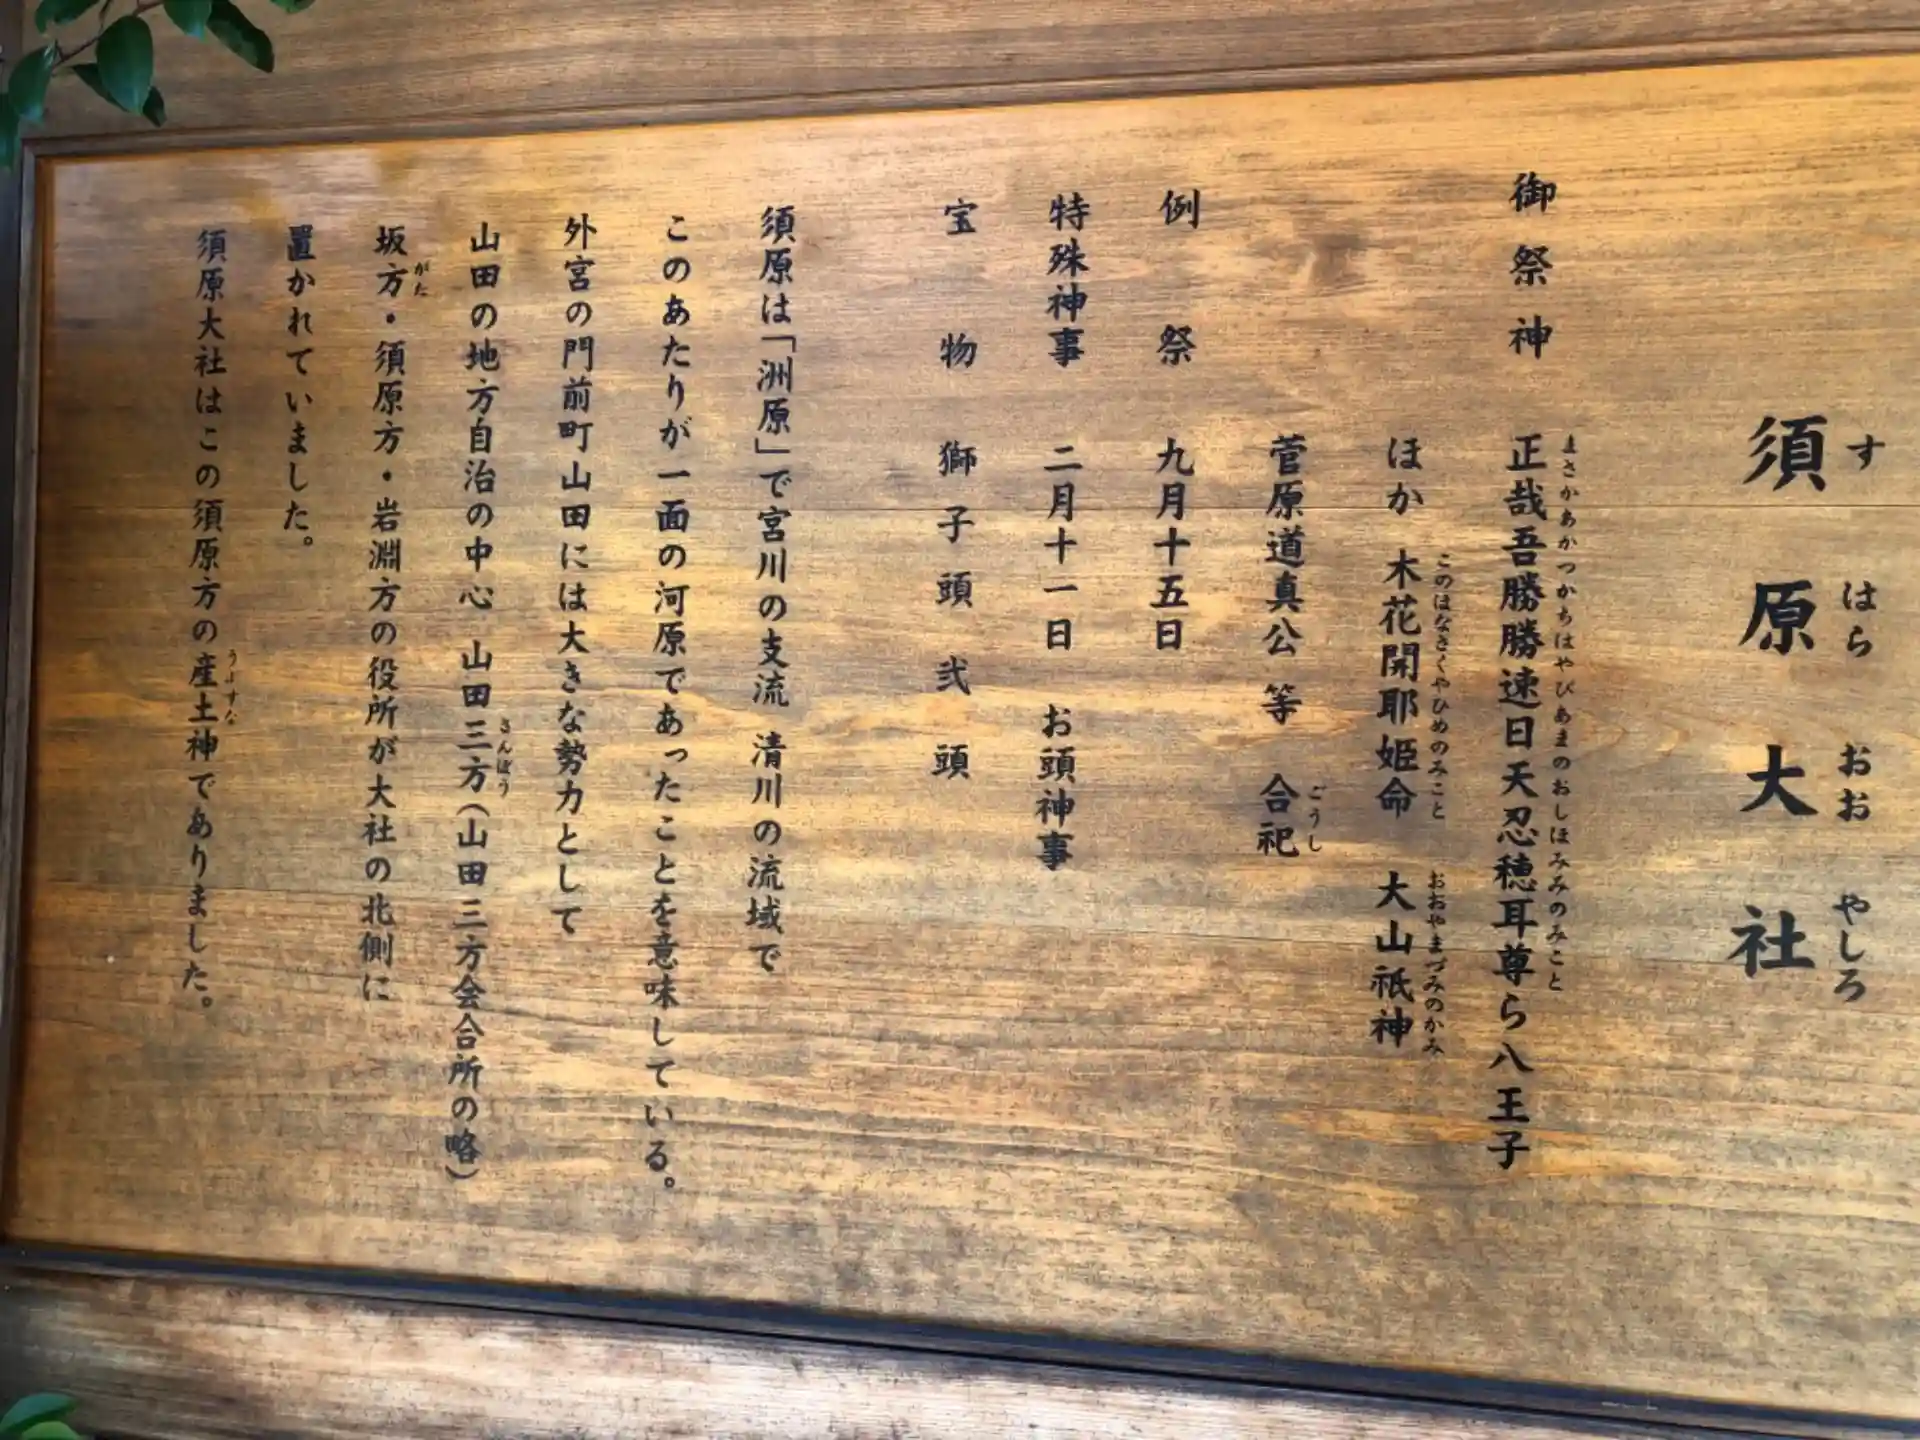 須原大社
すはらおおやしろ
御祭神 正哉吾勝勝速日天忍穂耳尊ら八王子
まさかあかつかちはやびあまのおしほみみのみこと
ほか 木花開耶姫命 大山祇神
このはなさくやひめのみこと おおやまづみのかみ
菅原道真公 等 合祀
ごうし
例祭 九月十五日
特殊神事 二月十一日 お頭神事
宝物 獅子頭 弐頭
須原は「洲原」で宮川の支流 清川の流域で
このあたりが一面の河原であったことを意味している。
外宮の門前町山田には大きな勢力として
山田の地方自治の中心 山田三方(山田三方会合所の略)
さんぽう
坂方・須原方・岩淵方の役所が大社の北側に
がた
置かれていました。
須原大社はこの須原方の産土神でありました。
うぶすな